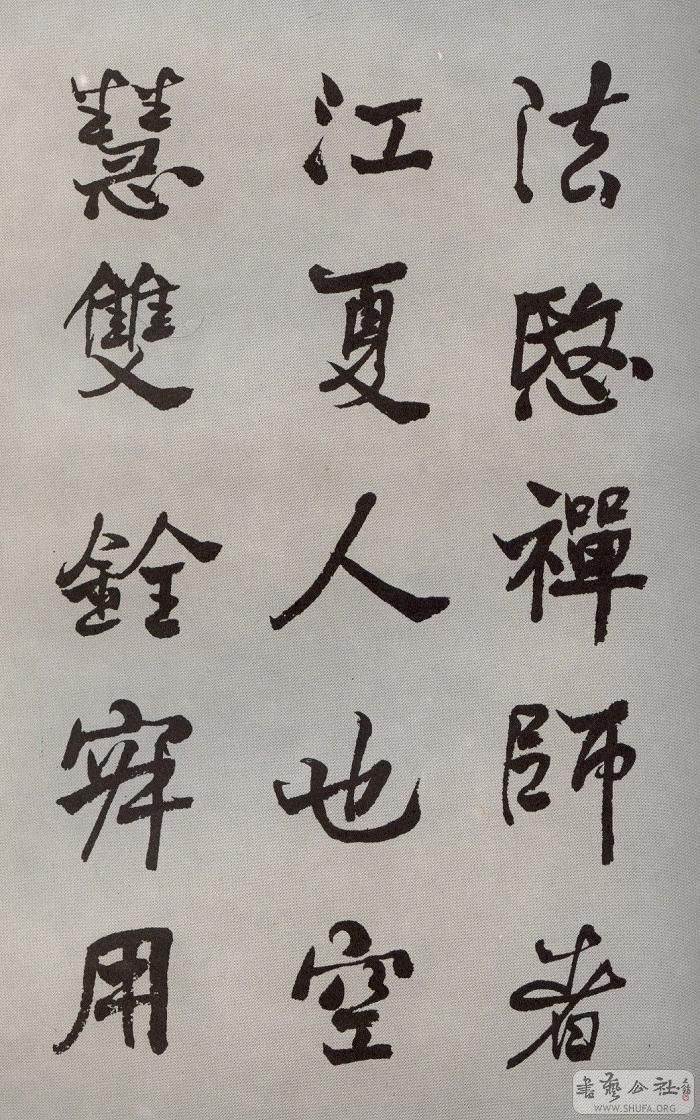 法愍禪師者
江夏人也空
慧雙銓寂用
書藝公社
WWW.SHUFA.ORG